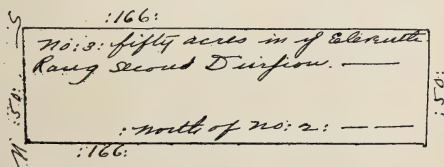 :166:
S
no: 3: fifty acres in yᵉ Eleventh
Rang Second Divission. —
:50:
:50:
: north of no: 2: — —
N
:166: